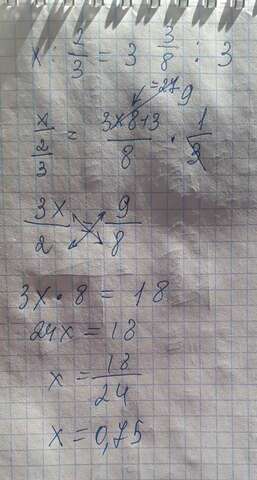 x : 2/3 = 3 3/8 : 3
x / 2/3 = 3x8+3 / 8 · 1/3 =27 9
3x/2 = 9/8
3x · 8 = 18
24x = 18
x = 18/24
x = 0,75